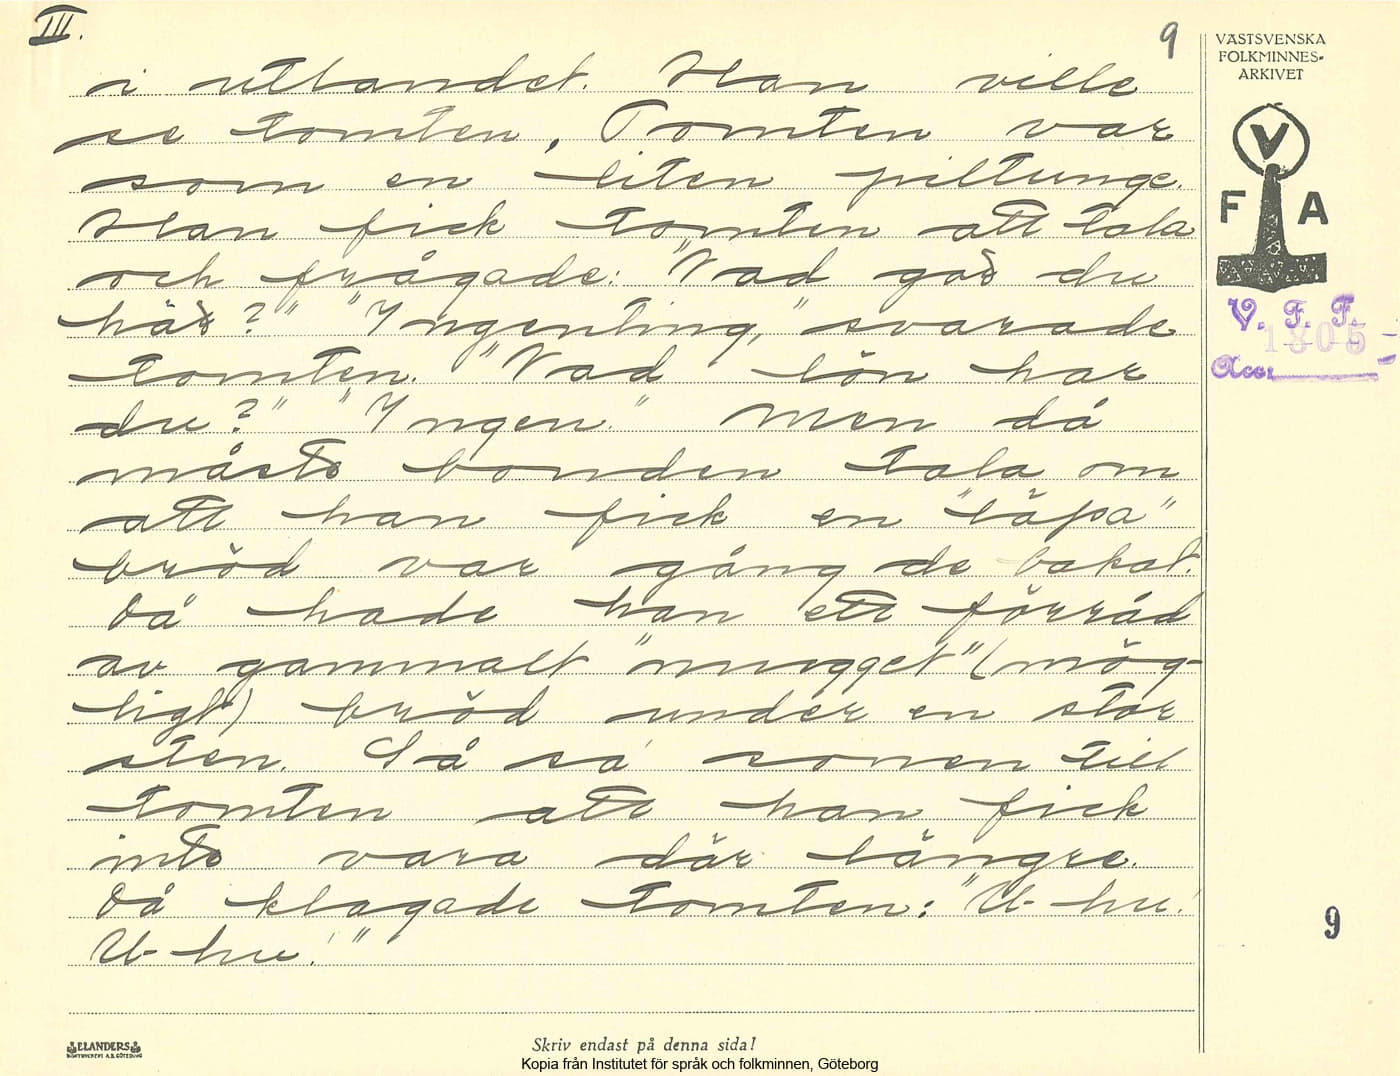 III.
9
i utlandet. Han ville
se tomten, Tomten var
som en liten piltunge.
Han fick tomten att tala
och frågade: "Vad gör du
här?" "Ingenting," svarade
tomten. "Vad lön har
du?" "Ingen." Men då
måste bonden tala om
att han fick en "låpa"
bröd var gång de bakat.
Då hade han ett förråd
av gammalt "mugget" (mög-
ligt) bröd under en stor
sten. Så sa sonen till
tomten att han fick
inte vara där längre.
Då klagade tomten: "U-hu!
U-hu!"
VÄSTSVENSKA
FOLKMINNES-
ARKIVET
V
F A
V. F. F.
1805
Acc.
9
ELANDERS
BOKTRYCKERI A.B. GÖTEBORG
Skriv endast på denna sida!
Kopia från Institutet för språk och folkminnen, Göteborg